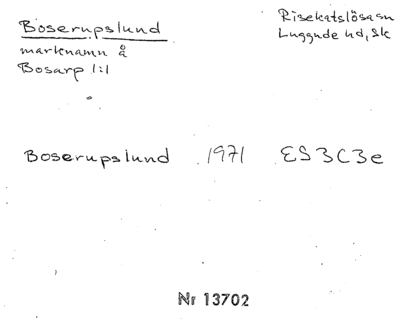 Boserupslund
marknamn å
Bosarp 1:1
Risekatslösa sn
Luggude hd, Sk
Boserupslund 1971 ES3C3e
Nr 13702